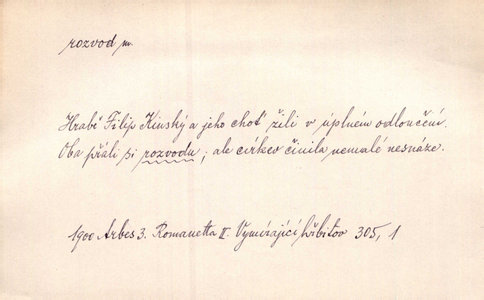 rozvod m.
Hrabě Filip Kinský a jeho choť žili v úplném odloučení.
Oba přáli si rozvodu; ale církev činila nemalé nesnáze.
1900 Arbes 3. Romanetta II. Vymírající hřbitov 305, 1